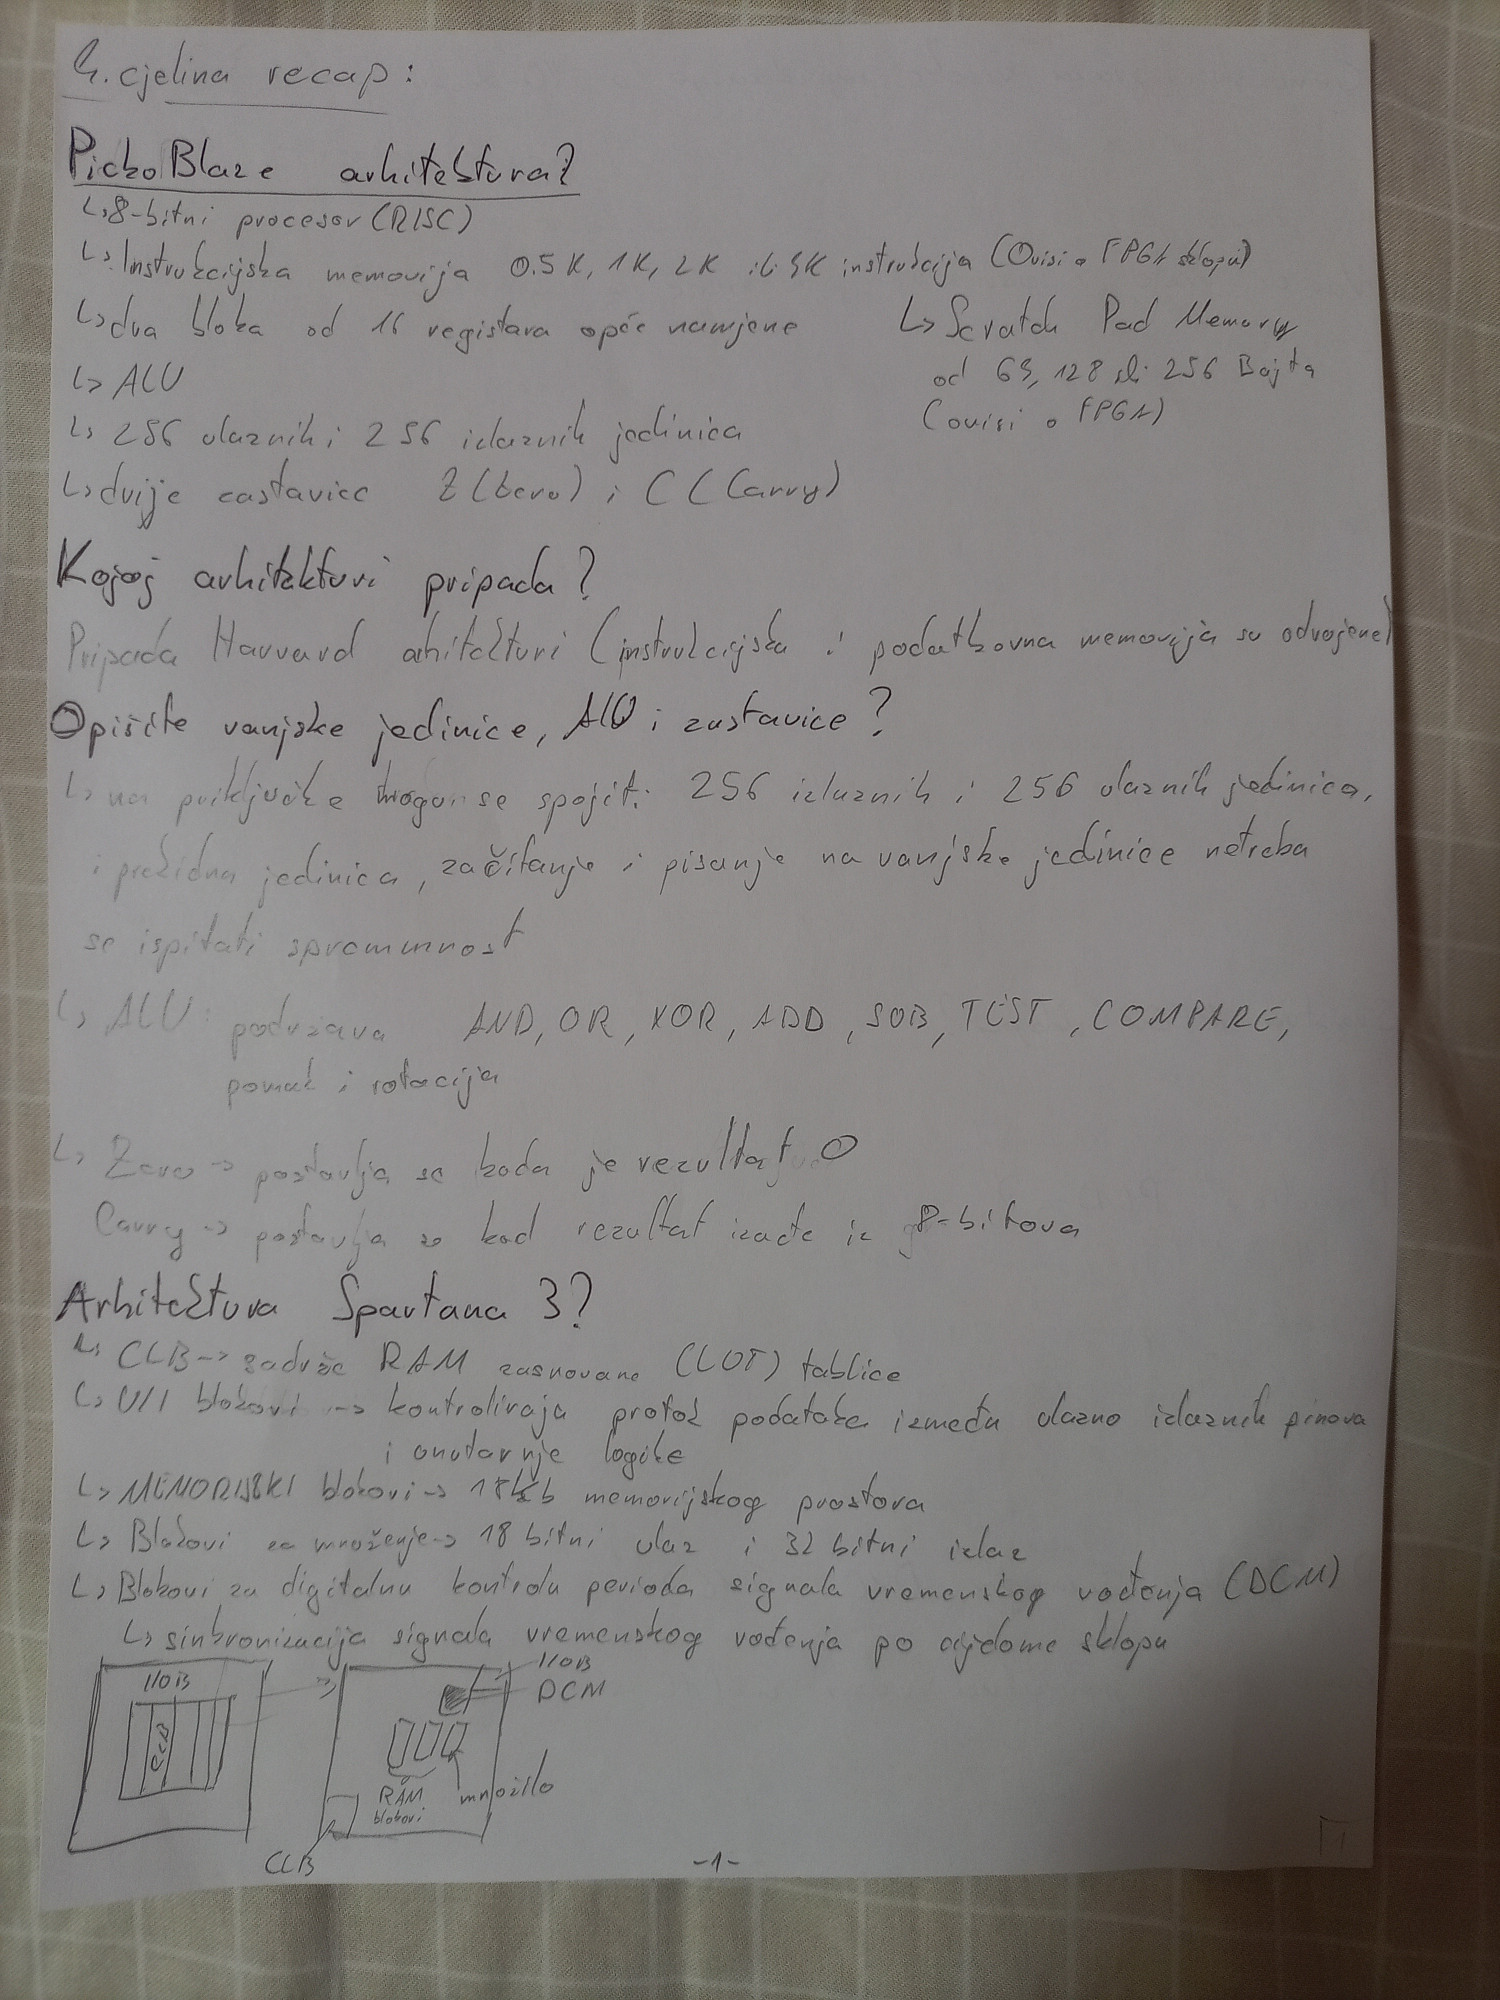 4. cjelina recap:
PickoBlaze arhitektura?
↳ 8-bitni procesor (RISC)
↳ Instrukcijska memorija 0.5K, 1K, 2K ili 4K instrukcija (Ovisi o FPGA sklopu)
↳ dva bloka od 16 registara opće namjene
↳ Scratch Pad Memory
od 64, 128 ili 256 Bajta
(ovisi o FPGA)
↳ ALU
↳ 256 ulaznih i 256 izlaznih jedinica
↳ dvije zastavice Z (Zero) i C (Carry)
Kojoj arhitekturi pripada?
Pripada Harvard ahitekturi (instrukcijska i podatkovna memorija su odvojene)
Opišite vanjske jedinice, ALU i zastavice?
↳ na priključke mogu se spojiti 256 izlaznih i 256 ulaznih jedinica,
i prekidna jedinica, za čitanje i pisanje na vanjske jedinice netreba
se ispitati spremnnost
↳ ALU: podrzava AND, OR, XOR, ADD, SUB, TEST, COMPARE,
pomak i rotacija
↳ Zero -> postavlja se kada je rezultat 0
Carry -> postavlja se kad rezultat izađe iz 8-bitova
Arhitektura Spartana 3?
↳ CLB -> sadrže RAM zasnovane (LUT) tablice
↳ U/I blokovi -> kontroliraja protok podataka između ulazno izlaznih pinova
i unutarnje logike
↳ MEMORIJSKI blokovi -> 18kb memorijskog prostora
↳ Blokovi za množenje -> 18 bitni ulaz i 32 bitni izlaz
↳ Blokovi za digitalnu kontrolu perioda signala vremenskog vođenja (DCM)
↳ sinkronizacija signala vremenskog vođenja po cijelome sklopu
I/OB
CLB
I/OB
DCM
RAM
blokovi
množilo
CLB
-1-